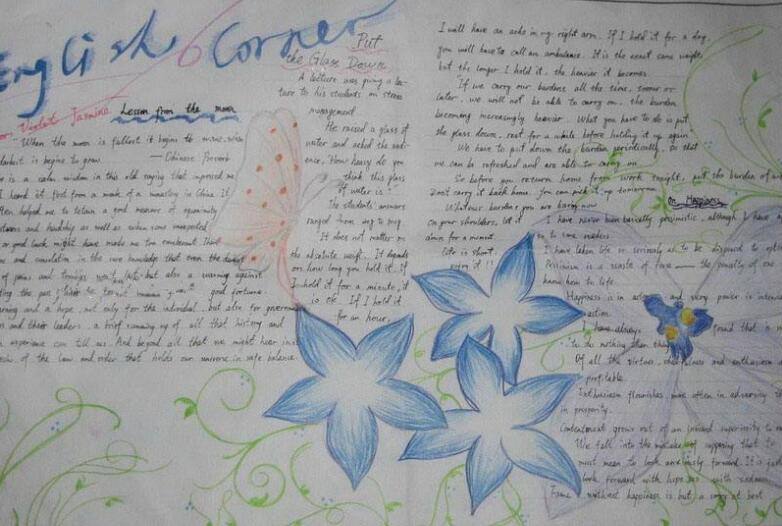 English Corner
Violet Jasmine
Lesson from the moon
When the moon is fullest it begins to wane, when
darkest it begins to grow.
— Chinese Proverb
is a calm wisdom in this old saying that impressed me
I heard it first from a monk of a monastery in China. It
often helped me to retain a good measure of equanimity
and hardship as well as when some unexpected
or good luck might have made me too exuberant. There
and consolation in the sure knowledge that even the
of pains and but also a warning against
good fortune.
and a hope, not only for the individual, but also for
and their leaders, a brief summing up of all that history and
experience can tell us. And beyond all that we might hear in
of the law and order that holds our universe in safe balance.
Put
the Glass Down
A lecture was giving a lec-
ture to his students on stress
management.
He raised a glass of
water and asked the audi-
ence, "How heavy do you
think this glass
of water is?"
The students' answers
ranged from
It does not matter on
the absolute weight. It depends
on how long you hold it. If
I hold it for a minute, it
is OK. If I hold it
for an hour,
I will have an ache in my right arm. If I hold it for a day,
you will have to call an ambulance. It is the exact same weight,
but the longer I hold it, the heavier it becomes.
"If we carry our burdens all the time, sooner or
later, we will not be able to carry on, the burden
becoming increasingly heavier. What you have to do is put
the glass down, rest for a while before holding it up again.
We have to put down the burden periodically, so that
we can be refreshed and are able to carry on.
So before you return home from work tonight, put the burden of
Don't carry it back home. You can pick it up tomorrow.
Whatever burdens you are having now
on your shoulders, let it
down for a minute.
Life is short,
enjoy it!!
On Happiness
I have never been basically pessimistic, although I have
to some readers
I have taken life so seriously as to be disposed to
Pessimism is a waste of force — the penalty of one
know how to life.
Happiness is in and every power is
I have always found that is
to do nothing than
Of all the virtues, cheerfulness and enthusiasm
profitable.
Enthusiasm flourishes more often in adversity
in prosperity.
Contentment grows out of an inward superiority to
We fall into the mistake of supposing that
must mean to look anxiously forward. It is just
look forward with hope as with sadness
Fame without happiness is but a sorry at best